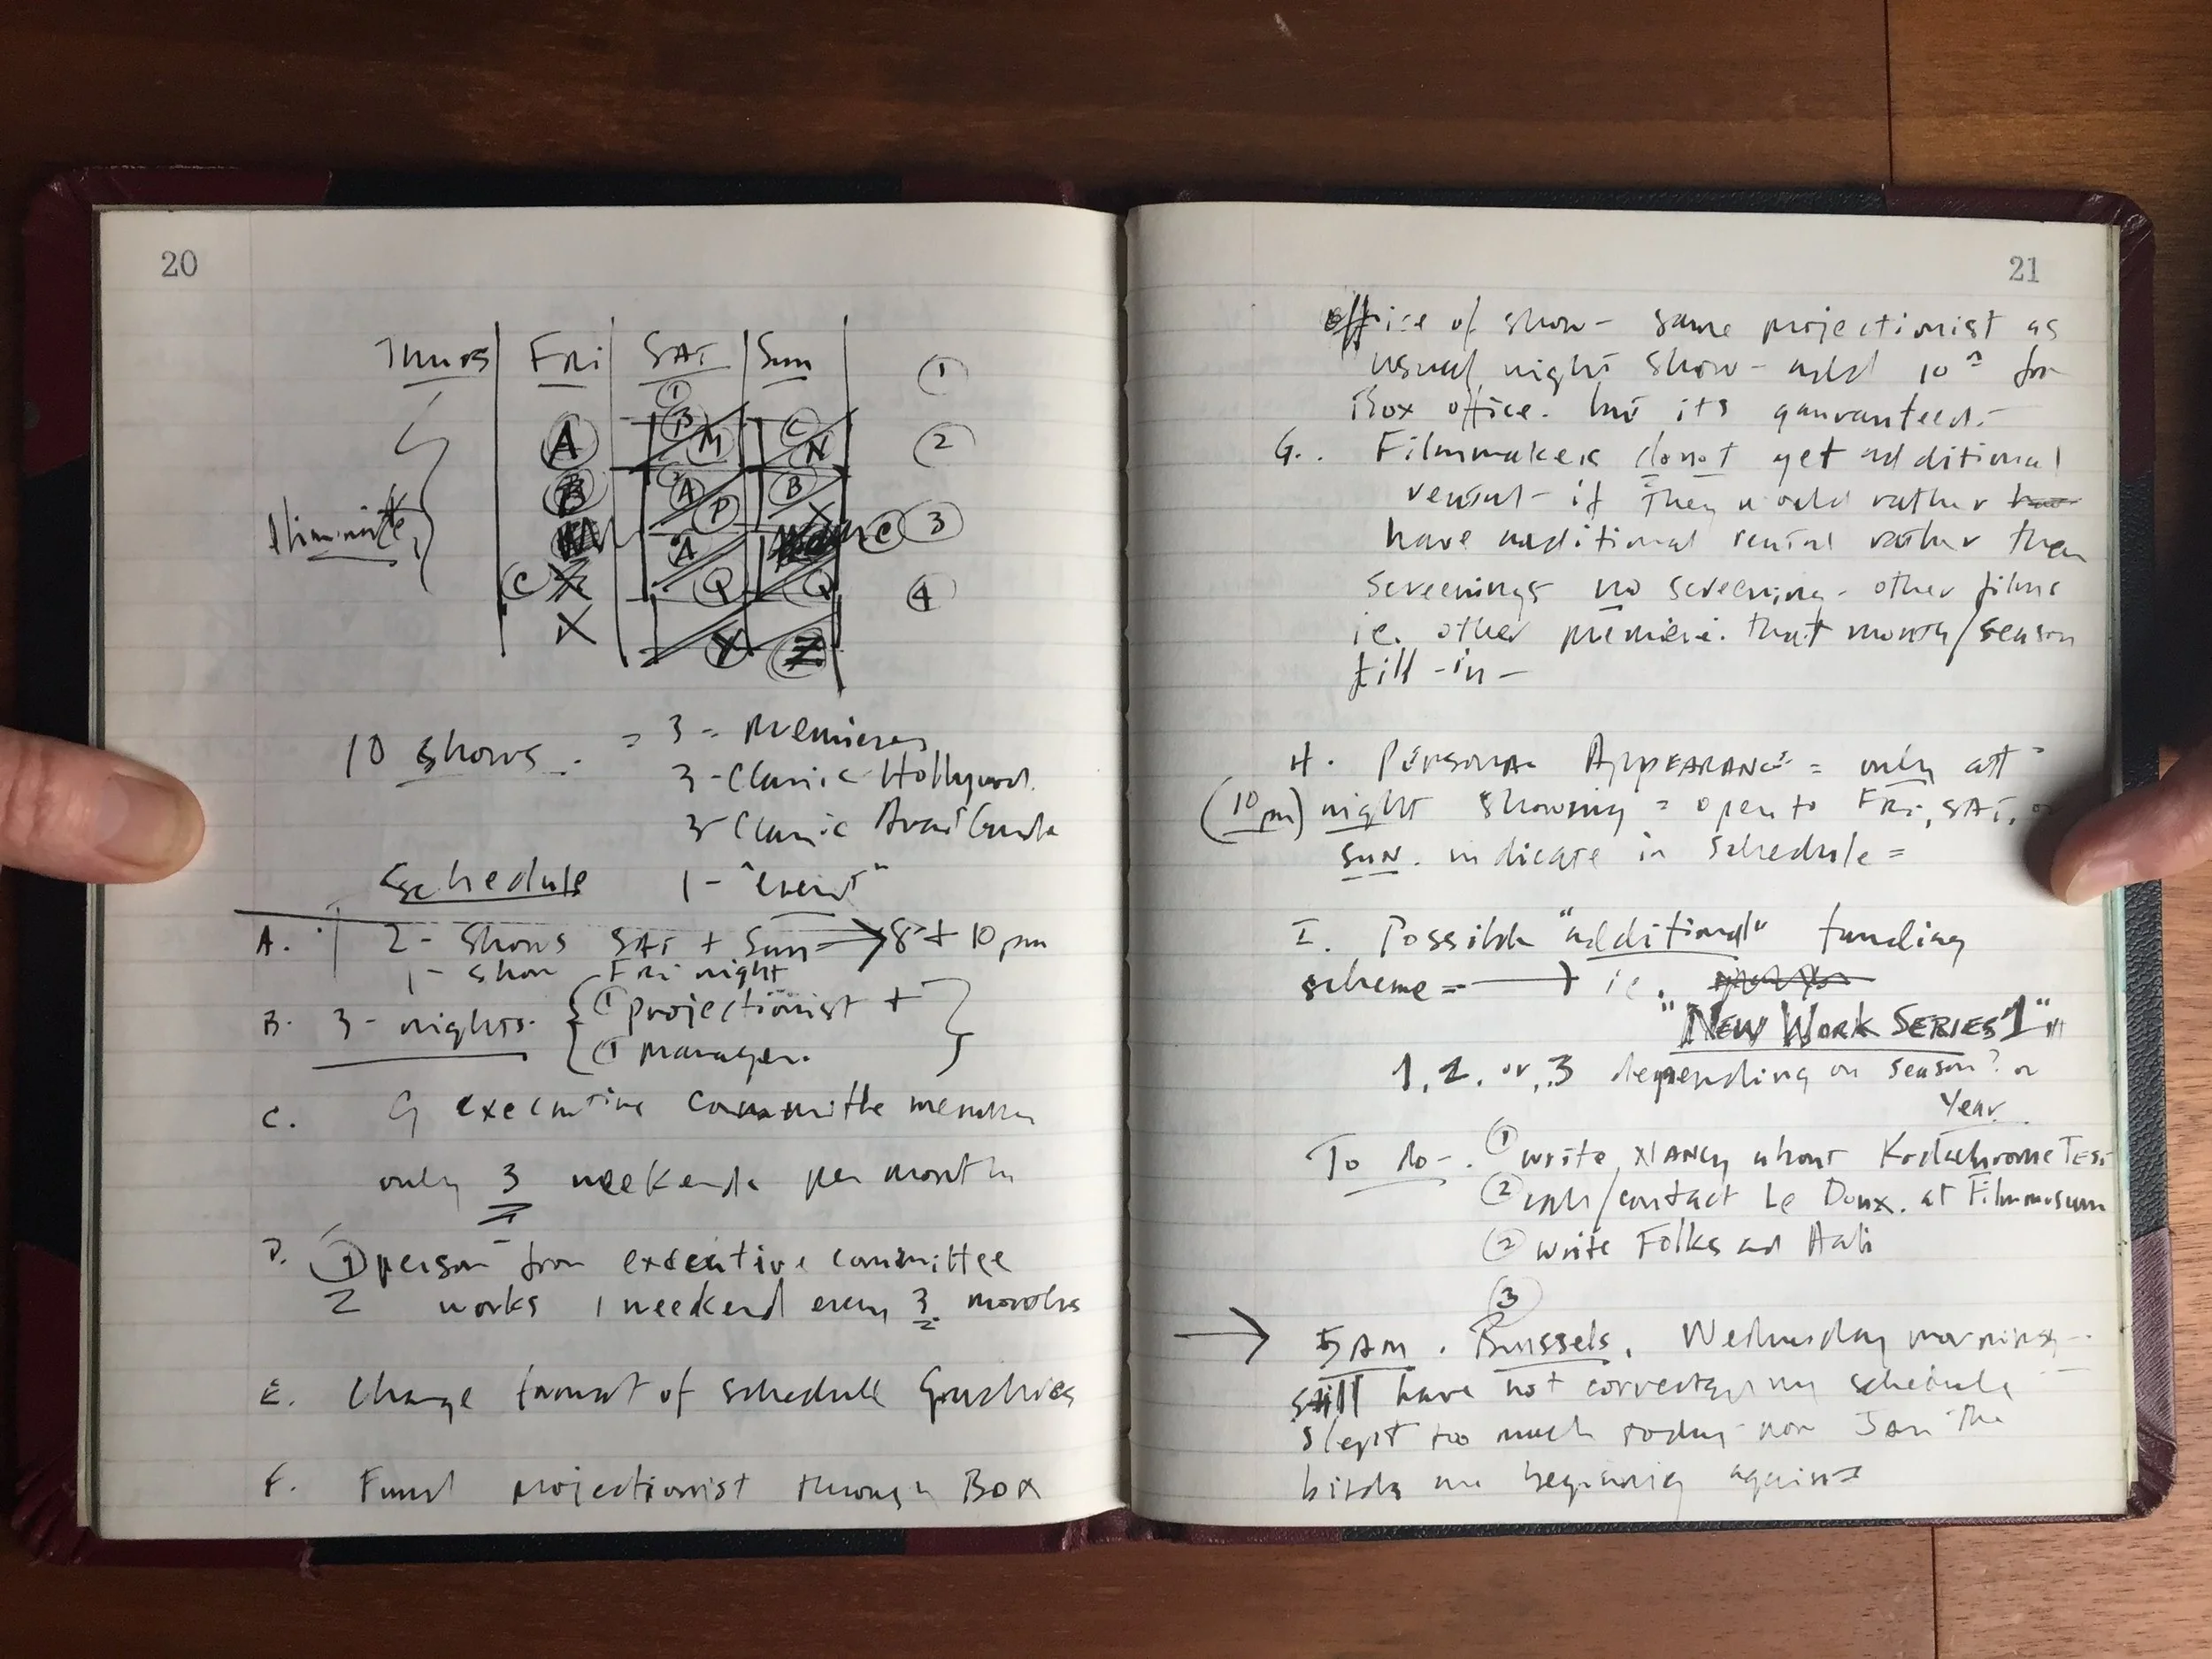 20
Thurs Fri SAT Sun
①
①
B C
A M N ②
B A B
P X
Eliminate A C ③
C X Q Q ④
X Y Z
10 shows = 3 - Premieres
3 - Classic Hollywood
3 - Classic Avant Garde
Schedule 1 - "event"
A. 2 - shows SAT + Sun → 8 + 10 pm
1 - show Fri night
B. 3 - nights. { ① projectionist +
① manager. }
C. 9 executive committee members
only 3 weekends per month
D. ① person from executive committee
2 works 1 weekend every 3 months
E. Change format of schedule Graphics
F. Fund projectionist through Box
21
office of show - same projectionist as
usual night show - add 10 for
Box office. but its gauranteed.
G. Filmmakers do not get additional
rental - if They would rather
have additional rental rather then
screenings no screening - other films
ie. other premiere. that month/season
fill - in -
H. PERSONAL APPEARANCE = only at
(10 pm) night showing = open to FRI, SAT, or
SUN. indicate in schedule =
I. Possible "additional" funding
scheme = → ie.
"NEW WORK SERIES 1"
1, 2, or, 3 depending on season? or
Year
To do - . ① write NANCY about Kodachrome Test
② call/contact Le Doux. at Filmmuseum
② write Folks and
③
→ 5 AM . Brussels. Wednesday morning -
still have not corrected my schedule
slept too much today now 5 AM The
birds are beginning again